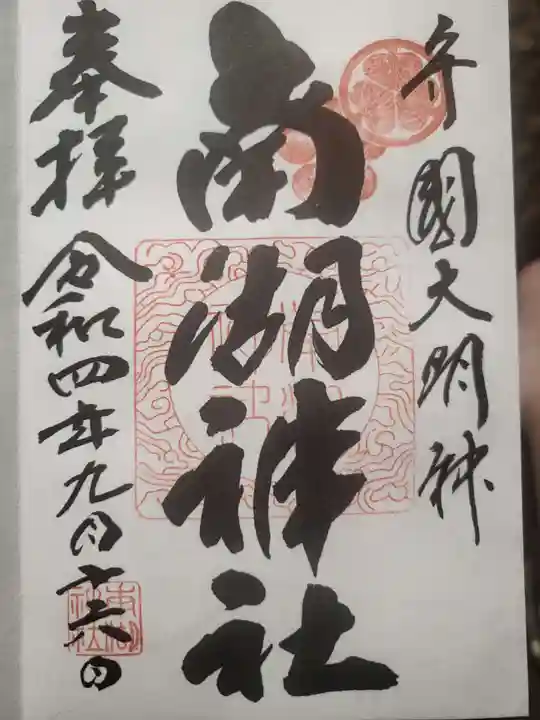 守國大明神
南湖神社
奉拝 令和四年九月十六日
南湖
神社